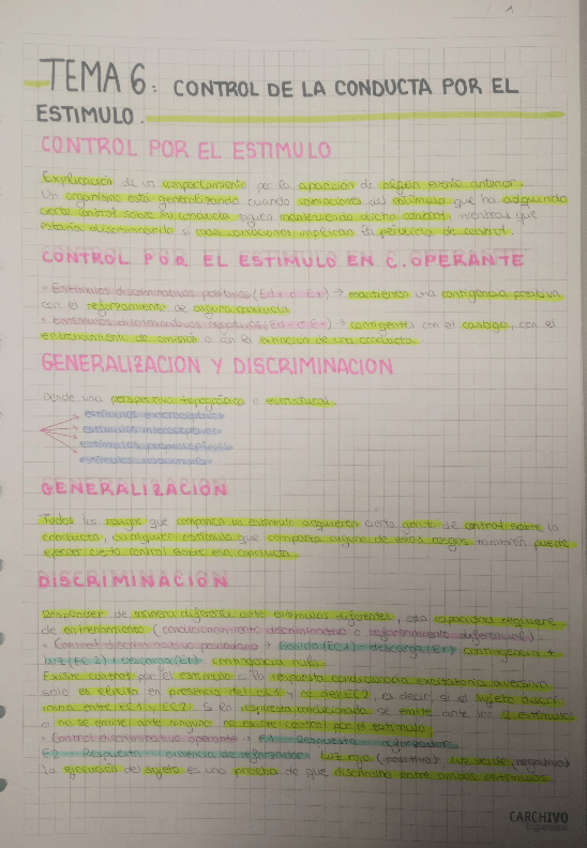 TEMA 6: CONTROL DE LA CONDUCTA POR EL
ESTIMULO.
CONTROL POR EL ESTIMULO
Explicación de un comportamiento por la aparición de algún evento anterior.
Un organismo esta generalizando cuando variaciones del estimulo que ha adquirido
cierto control sobre su conducta siguen manteniendo dicho control, mientras que
estaria discriminando si esas variaciones implican la pérdida de control.
CONTROL POR EL ESTIMULO EN C. OPERANTE
• Estimulos discriminativos positivos (Ed+ o E+) → mantienen una contigencia positiva
con el reforzamiento de alguna conducta
• Estimulos discriminativos negativos (Ed- o E-) → contigentes con el castigo, con el
entrenamiento de omisión o con la extincion de una conducta.
GENERALIZACION Y DISCRIMINACION
Desde una perspectiva topográfica o estructural
estimulos exteroceptivos
estimulos interoceptivos
estimulos propioceptivos
estimulos
GENERALIZACION
Todos los rasgos que componen un estimulo adquieren cierto grado de control sobre la
conducta, cualquier estimulo que comparta alguno de esos rasgos tambien puede
ejercer cierto control sobre esa conducta.
DISCRIMINACION
Responder de manera diferente ante estimulos diferentes, esta capacidad requiere
de entrenamiento (condicionamiento discriminativo o reforzamiento diferencial).
• Control discriminativo pavloviano → Sonido (EC1) - descarga (EI) contingencia +
luz (EC2) - descarga (EI) contingencia nula.
Existe control por el estimulo si la respuesta condicionada excitatoria aversiva
solo es elicita en presencia del EC1 y no del EC2, es decir, si el sujeto discri-
mina entre EC1 y EC2. Si la respuesta condicionada se emite ante los 2 estimulos
o no se emite ante ninguno no existe control por el estimulo
• Control discriminativo operante → E1 - Respuesta - reforzador
E2 - Respuesta - ausencia de reforzador luz roja (positivo) luz verde (negativo)
La ejecución del sujeto es una prueba de que discrimina entre ambos estimulos
CARCHIVO